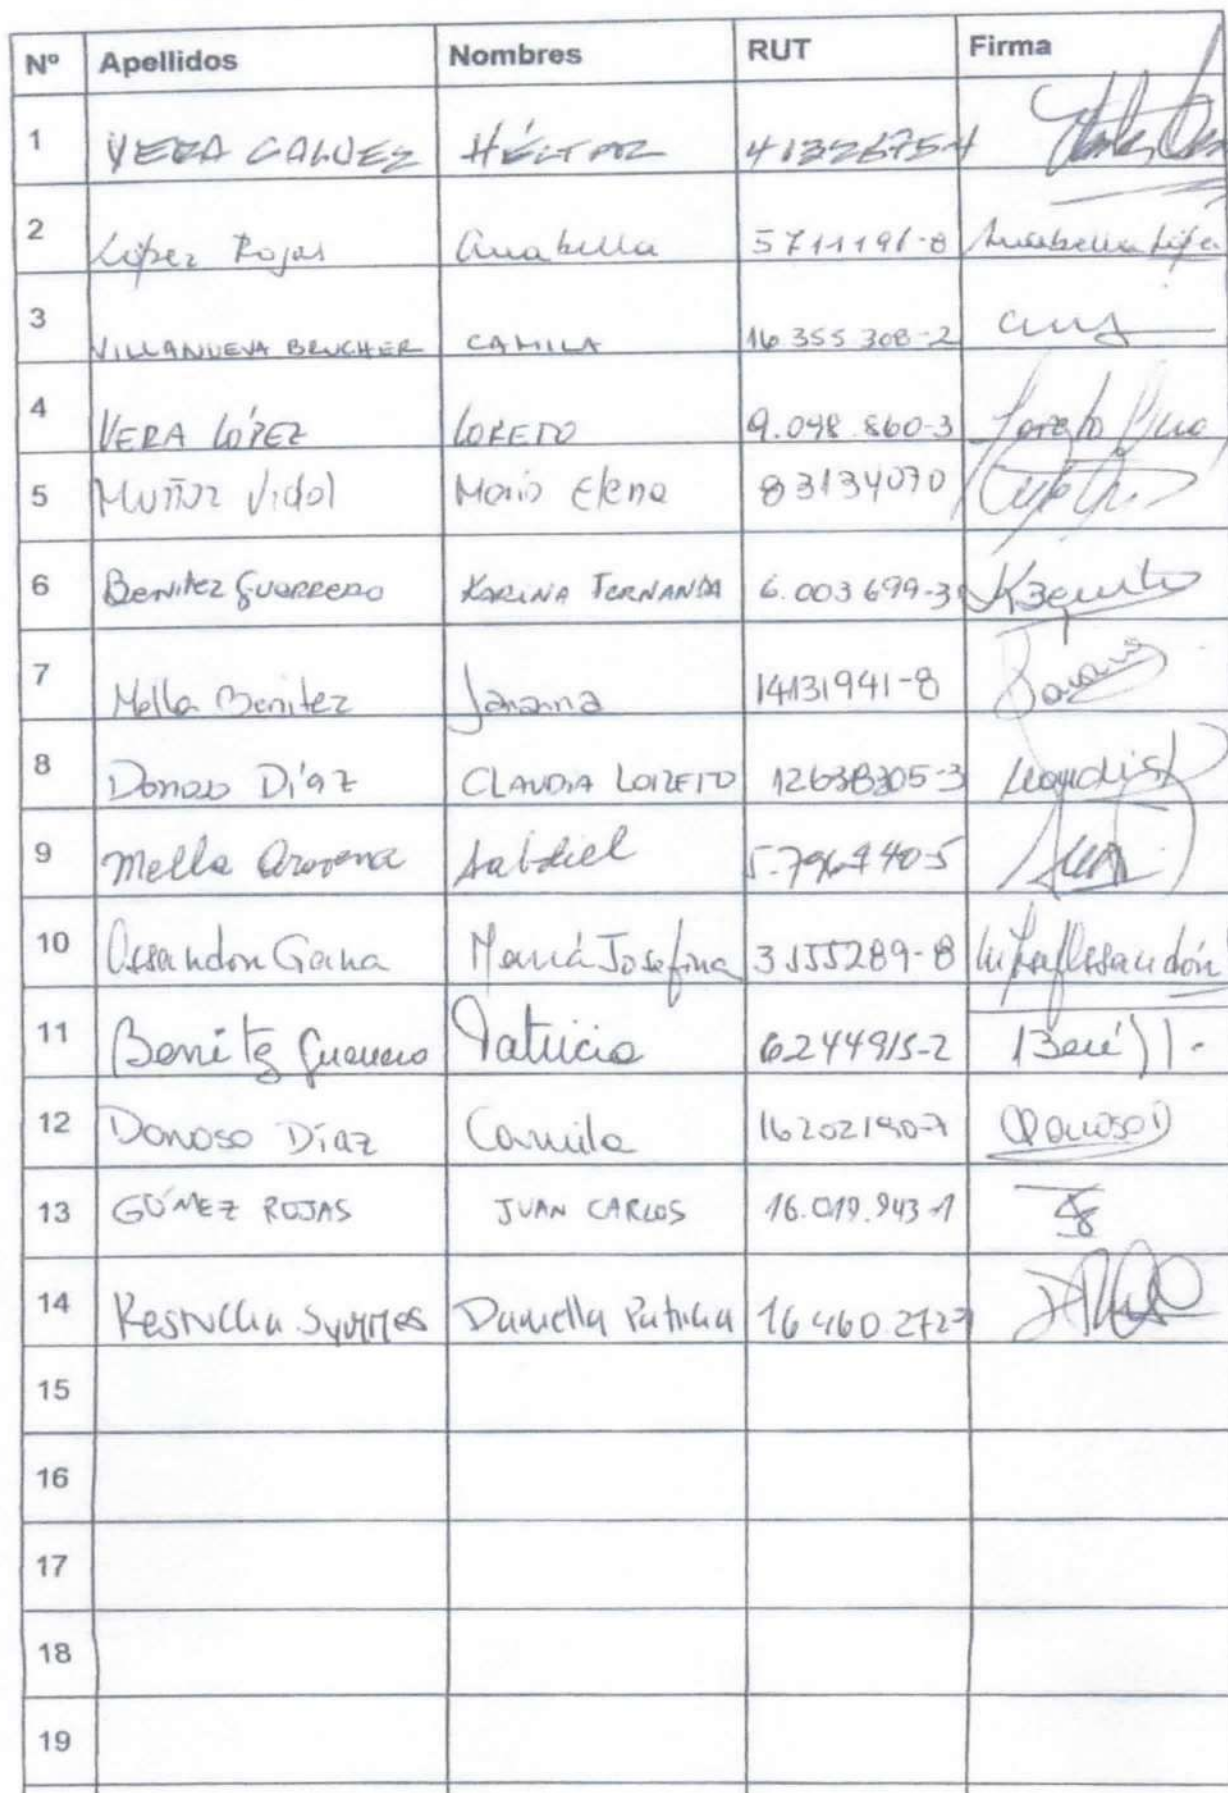 Nº Apellidos Nombres RUT Firma
1 VERA GALVEZ HÉCTOR 4132675-4
2 López Rojas Anabella 5711191-8 Anabella López
3 VILLANUEVA BRUCHER CAMILA 16.355.308-2
4 VERA LÓPEZ LORETO 9.098.860-3 Loreto Vera
5 Muñoz Vidal Maria Elena 83134070
6 Benitez Guerrero KARINA FERNANDA 6.003.699-3
7 Mella Benitez Janana 14131941-8
8 Donoso Díaz CLAUDIA LORETO 12638305-3
9 Mella Aravena 5.796740-5
10 Ossandon Gana María Josefina 3155289-8
11 Benitez Guerrero Patricia 6244915-2
12 Donoso Díaz Camila 16202190-7 CDonosoD
13 GÓMEZ ROJAS JUAN CARLOS 16.019.943-1
14 Daniella Patricia 16460272-7
15
16
17
18
19